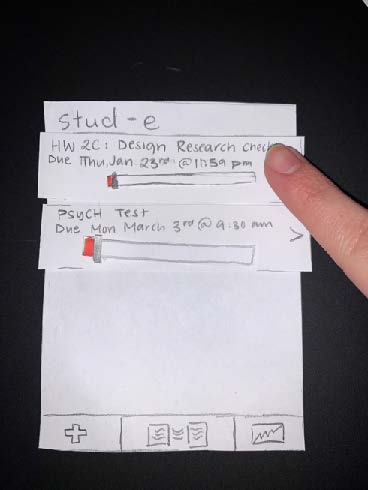 stud-e
HW 2C: Design Research Check
Due Thu, Jan 23rd @ 11:59 pm
PSYCH Test
Due Mon March 3rd @ 9:30 am
>